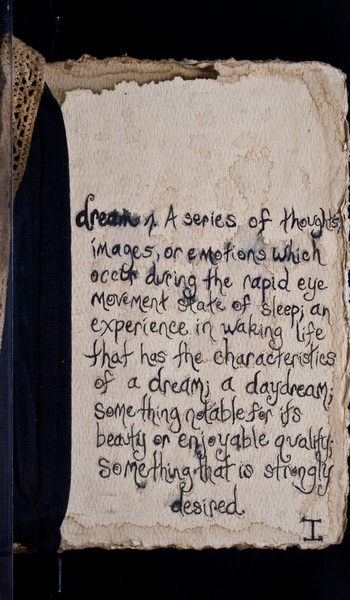 dream n. A series of thoughts,
images, or emotions which
occur during the rapid eye
movement state of sleep; an
experience in waking life
that has the characteristics
of a dream; a daydream;
something notable for its
beauty or enjoyable quality;
something that is strongly
desired.
I